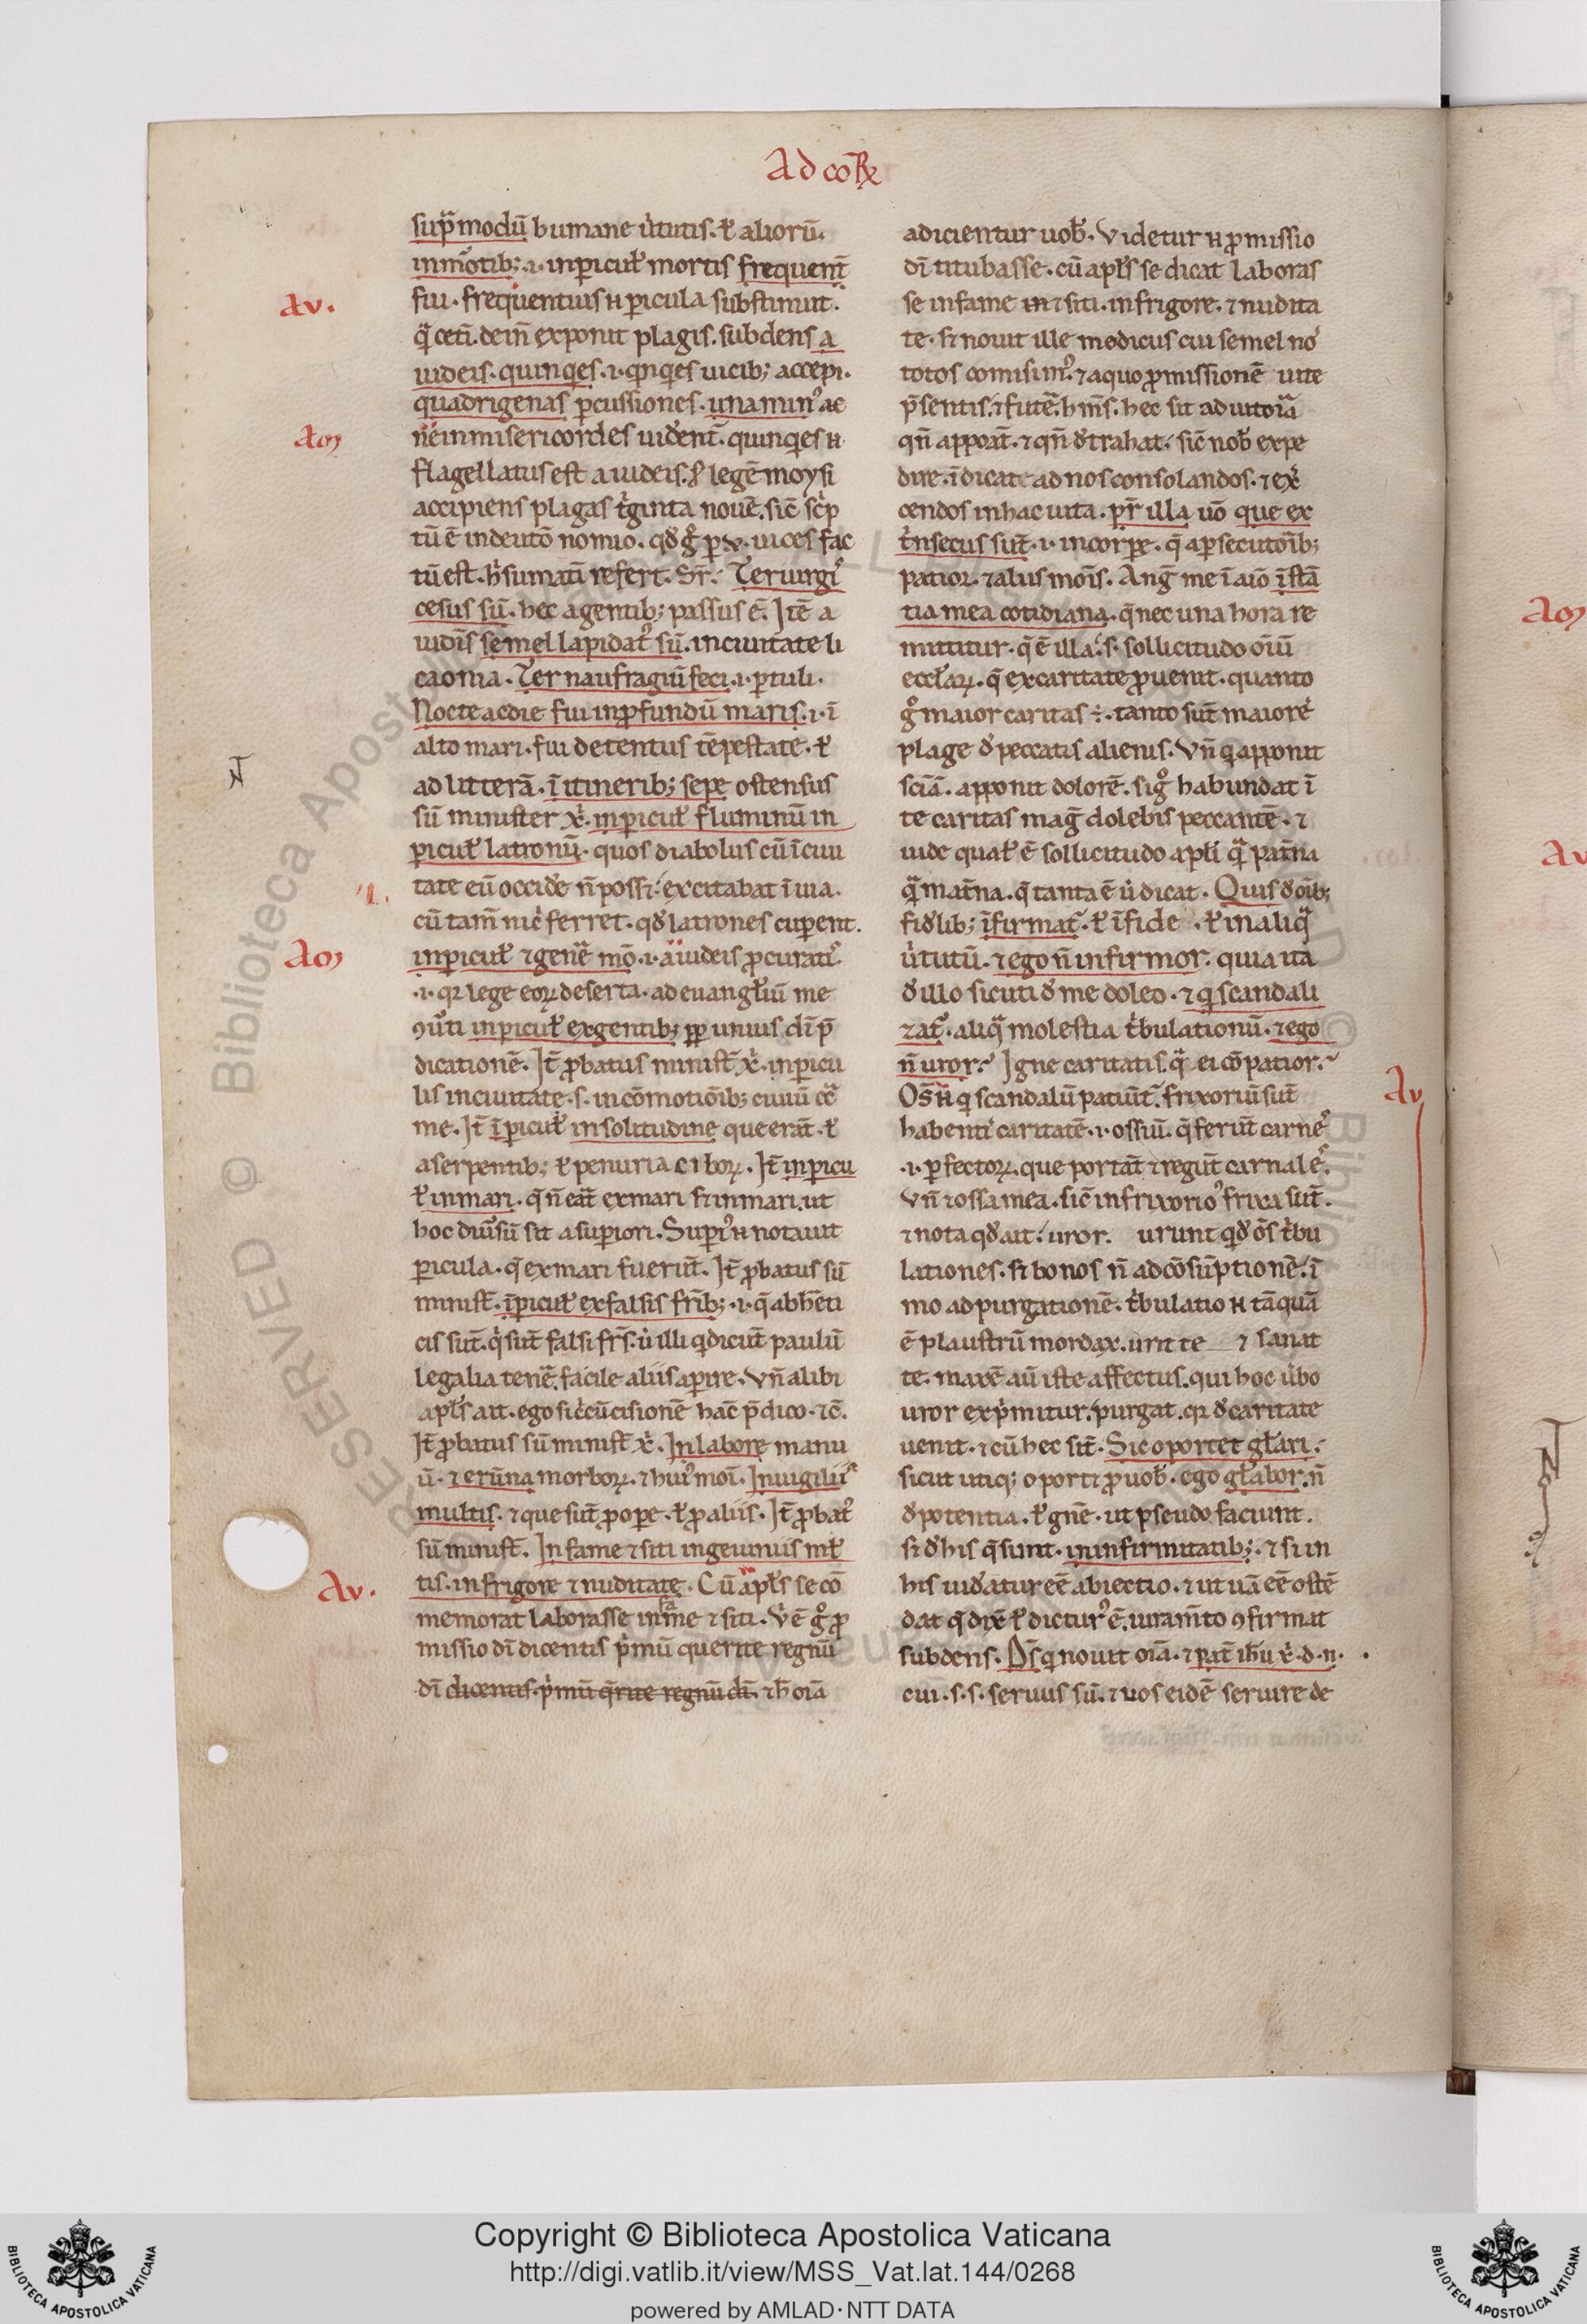 Ad coR̄x
sup̃modū humane ùtutis. ł aliorū.
inmōtib; .i. inpicul' mortis frequent̄
fui. frequentius n̄ picula substinuit.
q̃ ceti. dein̄ exponit plagis. subdens a
iudeis. quinq̨es .i. qͥnqͥes uicib; accepi.
quadrigenas pcussiones. una min᾽ ac
ne inmisericordes uident᾽. quinq̨es n̄
flagellatus est a iudeis. s̄ legē moysi
accipiens plagas tͥginta nouē. sic̄ scͥp
tū ē indeutō nomio. qđ gͦ p .v. uices fac
tū est. hͥ sumatī refert. Sr̄. Ter uirgi᾽
cesus sū. hec a gentib; passus ē. Itē a
iudīs semel lapidat᾽ sū. in ciuitate li
caonia. Ter naufragiū feci .i. ptuli.
Nocte ac die fui in pfundū maris .i. ī
alto mari. fui detentus tēpestate. ł
ad litterā. ī itinerib; sepe ostensus
sū minister xͥ. inpicul' fluminū in
picul' latronū. quos diabolus cū ī ciui
tate eū occiđe n̄ posset excitabat ī uia.
cū tam̄ nicͥ ferret. qđ latrones cuperent.
inpicul' ex geneᷓ meō .i. a iudeis pcurati᾽
.i. qꝛ lege eoꝝ deserta. ad euangl'iū me
ꝯuti inpicul' ex gentib; pp unius di p̄
dicationē. It̄ pbatus minist̄ xͥ. inpicu
lis in ciuitate .s. in cōmotiōib; ciuiū cͣ
me. It̄ ī picul' in solitudine que erāt. ł
a serpentib; ł penuria ciboꝝ. It̄ inpicu
l' in mari. q̄ n̄ eāt ex mari s; in mari. ut
hoc diuisū sit a superiori. Superi᾽ n̄ notauit
picula. q̄ ex mari fuerūt. It̄ pbatus sū
minist̄. ī picul' ex falsis fr̄ib; .i. q̄ ab h̄eti
cis sūt. qͥ sūt falsi fr̄s. ù illi qͥ dicūt paulū
legalia teneᷓ. facile aliis aperire. Vn̄ alibi
apl's ait. ego si cͥcūcisionē hāc p̄dico. ⁊c̄.
It̄ pbatus sū minist̄ xͥ. In labore manu
ū. ⁊ erūna morboꝝ. ⁊ hui᾽moī. In uigilii᾽
multis. ⁊ que sūt p ope. ł p aliis. It̄ pbat᾽
sū minist̄. In fame ⁊ siti in ieiuniis ml'
tis. in frigore ⁊ nuditate. Cū apl's se cō
memorat laborasse in fame ⁊ siti. Vͥ ē gͦ p
missio di dicentis pͥmū querite regnū
di dicentis. pͥmū q̄rite regnū di. ⁊ h̄ oīa
adicientur uob̄. Videtur n̄ pmissio
di titubasse. cū apl's se dicat laboras
se in fame in ⁊ siti. in frigore. ⁊ nudita
te. s; nouit ille medicus cui semel no᾽
totos comisim᾽. ⁊ a quo pmissionē uite
p̄sentis. ⁊ futeᷓ. h̄m᾽s. hec sit adiutoīa
qn̄ appoat. ⁊ qn̄ đtrahat. sic̄ nob̄ expe
dire. īdicat ad nos consolandos. ⁊ exͥ
cendos in hac uita. pr̄ illa uō que ex
tͥnsecus sūt. .i. in corpe. q̄ a psecutōib;
patior. ⁊ aliis moīs. Ang̃ me ī aīo īstā
tia mea cotidiana. q̄ nec una hora re
mittitur. q̄ ē illa. s. sollicitudo oīū
eccl'aꝝ. q̄ ex caritate puenit. quanto
gͦ maior caritas ÷. tanto sūt maiore᾽
plage đ peccatis alienis. Vn̄ qͥ apponit
sciā. apponit dolorē. si gͦ habundat ī
te caritas mag̃ dolebis peccantē. ⁊
uide qual' ē sollicitudo apl'i q̃ pat̄na
q̃ mat̄na. q̄ tanta ē ù dicat. Quis đ oīb;
fiđlib; īfirmat᾽. ł ī fide. ł in aliq̃
ùtutū. ⁊ ego n̄ infirmor. quia ita
đ illo sicuti đ me doleo. ⁊ qͥ scandali
zat᾽. aliq̃ molestia tͥbulationū. ⁊ ego
n̄ uror. Igne caritatis. q̃ ei cōpatior.
Os̄ n̄ qͥ scandalū patiūt᾽. frixoriū sūt
habenti᾽ caritatē .i. ossiū. q̄ ferūt carne᾽
.i. pfectoꝝ. que portāt ⁊ regūt carnale᾽.
Vn̄ ⁊ ossa mea. sic̄ in frixorio᾽ frixa sūt.
⁊ nota qđ ait. uror. urunt qͥđ ōs tͥbu
lationes. s; bonos n̄ ad cōsūptionē. ī
mo ad purgationē. tͥbulatio n̄ tāquā
ē plaustrū mordax. urit te ⁊ sanat
te. maxē aū iste affectus. qui hoc ùbo
uror expͥmitur. purgat. qꝛ đ caritate
uenit. ⁊ cū hec sit̄. Sic oportet gl'ari.
sicut utiq; oportꝫ p uob̄. ego gl'abor. n̄
đ potentia. ł gn̄e. ut pseudo faciunt.
s; đ his q̄ sunt. in infirmitatib; . ⁊ si in
his uiđatur eē abiectio. ⁊ ut uā eē ostē
dat q̄ dix̄ ł dictur᾽ ē. iuram̄to ꝯfirmat
subdens. Ds̄ qͥ nouit oīa. ⁊ pat̄ ih̄u xͥ. d. n.
cui .s.s. seruus sū. ⁊ uos eidē seruire de
Av.
Am
Am
Av.
Av
Am
Av
Copyright © Biblioteca Apostolica Vaticana
http://digi.vatlib.it/view/MSS_Vat.lat.144/0268
powered by AMLAD·NTT DATA
BIBLIOTECA APOSTOLICA VATICANA
BIBLIOTECA APOSTOLICA VATICANA